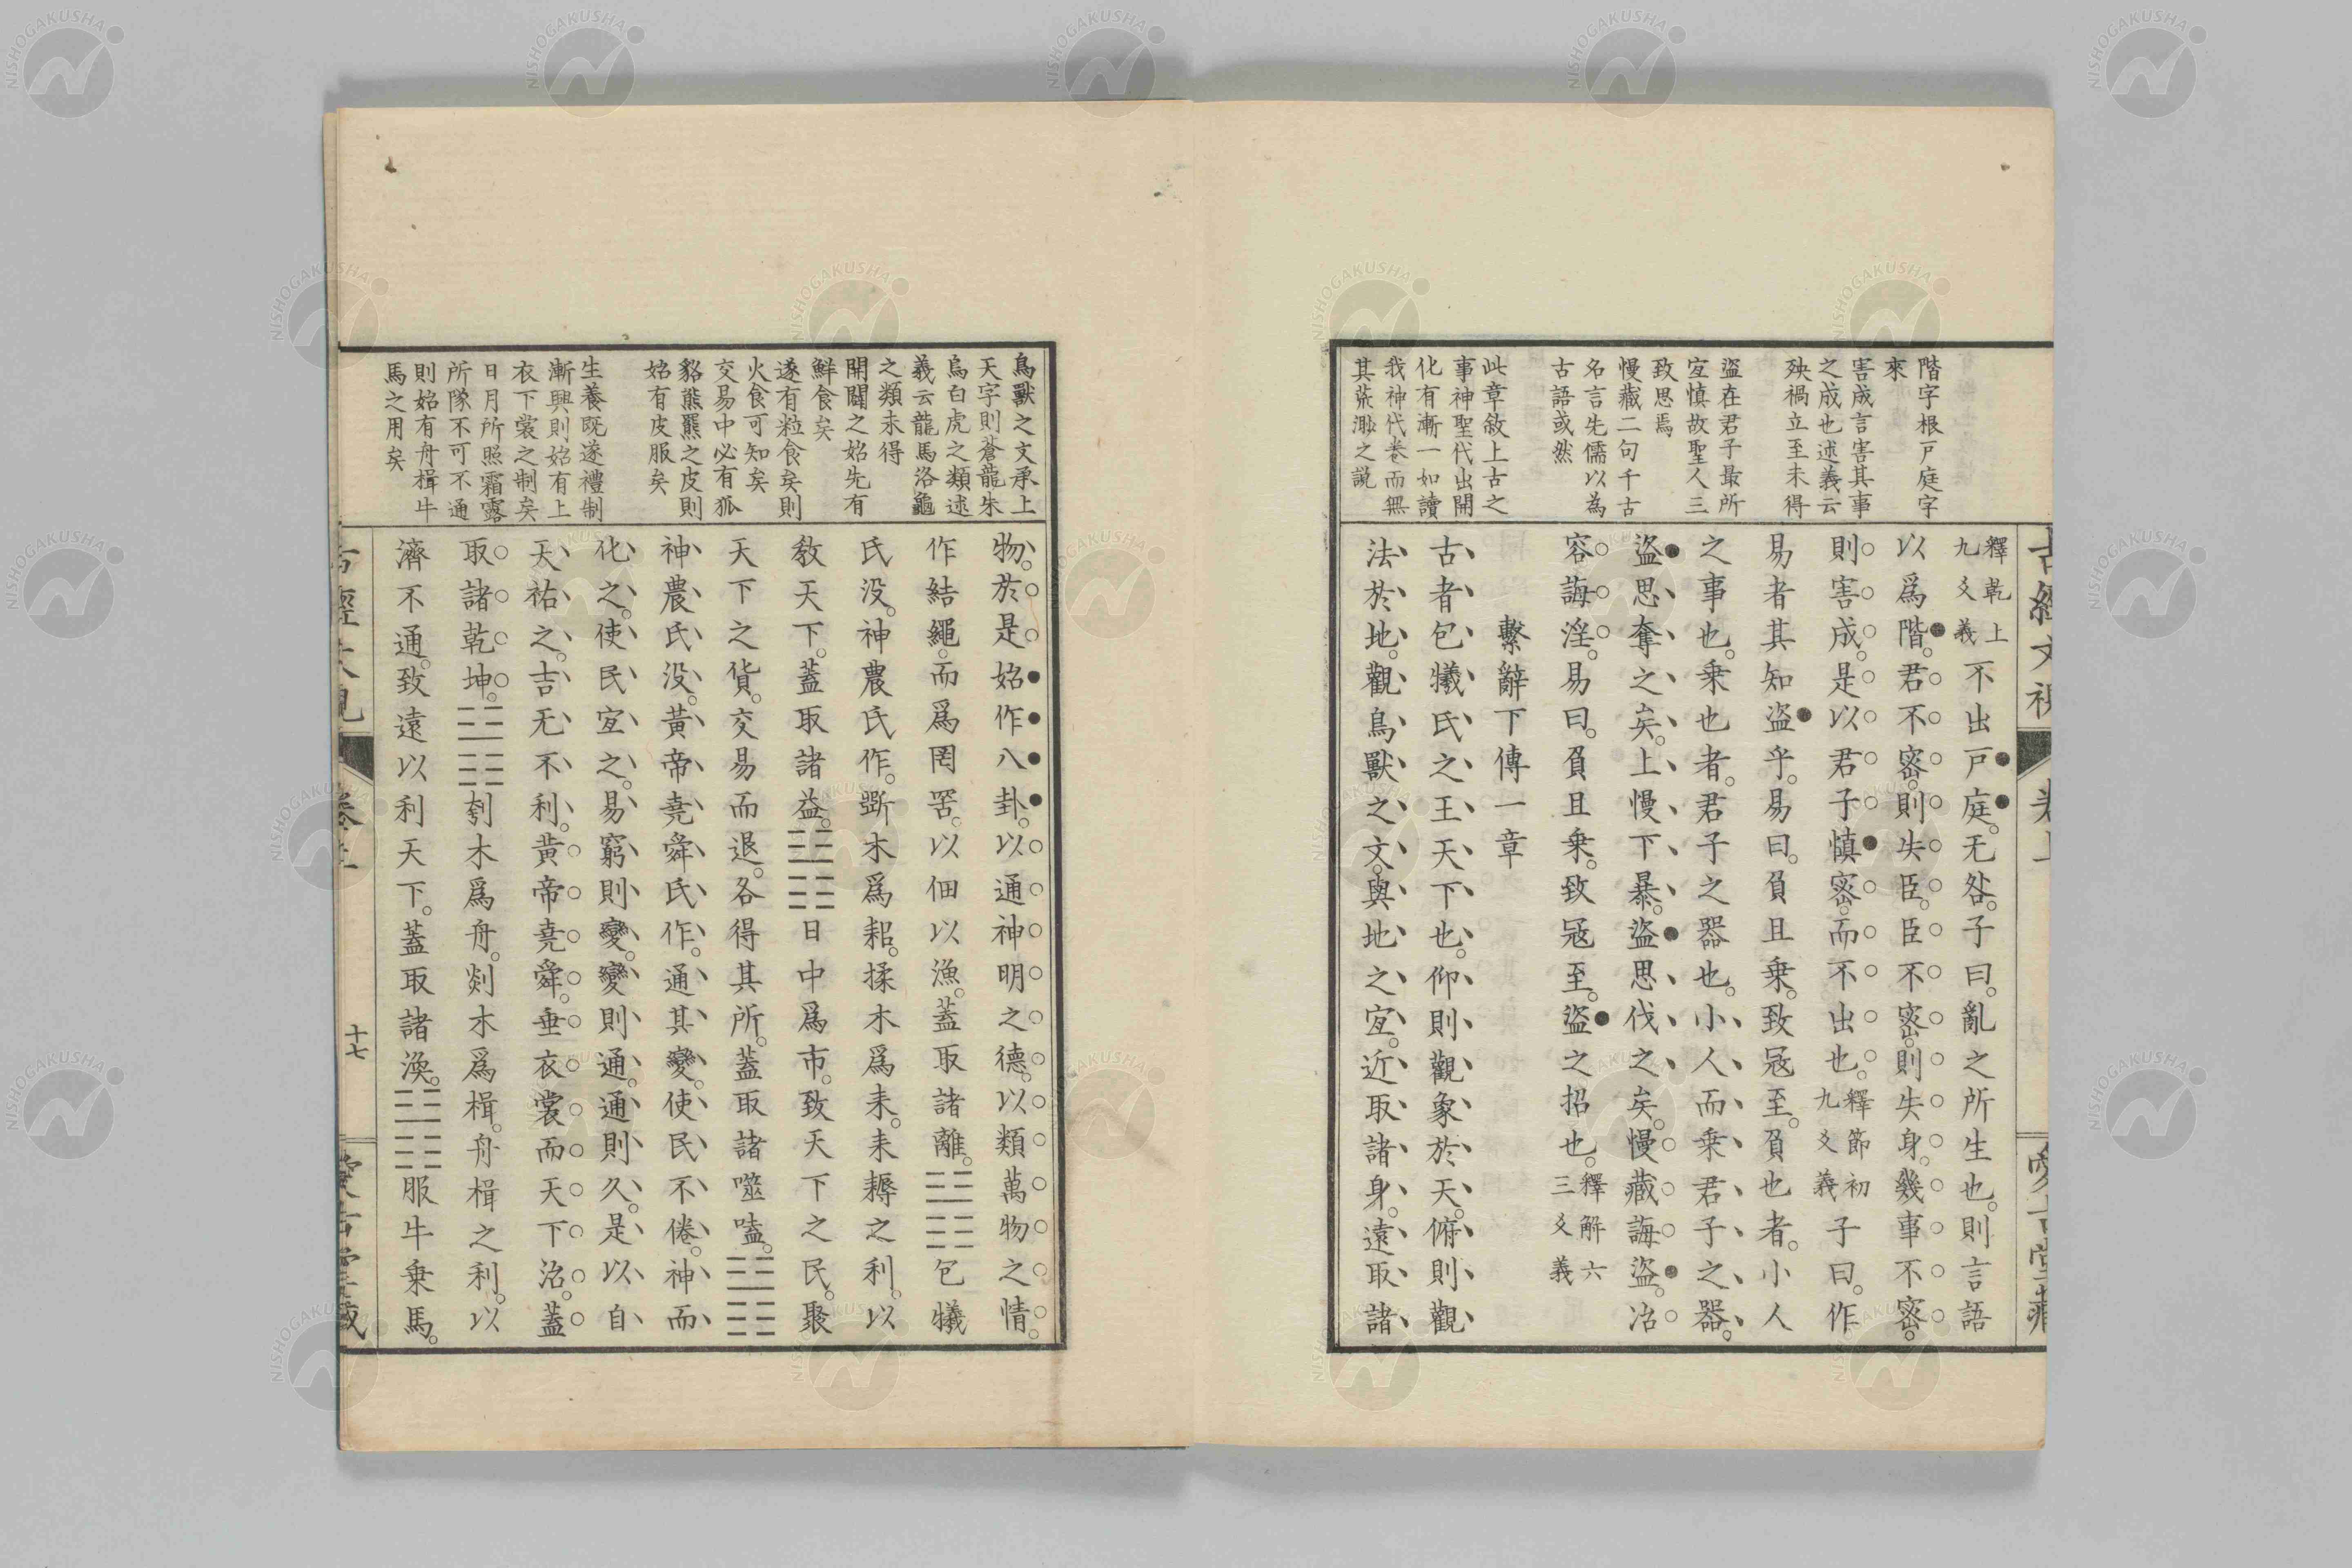 階字根戸庭字
來
害成言害其事
之成也述義云
殃禍立至未得
盜在君子最所
宜慎故聖人三
致思焉
慢藏二句千古
名言先儒以為
古語或然
此章敘上古之
事神聖代出開
化有漸一如讀
我神代卷而無
其荒渺之說
釋乾上
九爻義
不出戸庭。无咎。子曰。亂之所生也。則言語
以爲階。君不密。則失臣。臣不密。則失身。幾事不密。
則害成。是以君子慎密。而不出也。
釋節初
九爻義
子曰。作
易者其知盜乎。易曰。負且乗。致寇至。負也者。小人
之事也。乗也者。君子之器也。小人而乗君子之器。
盜思奪之矣。上慢下暴。盜思伐之矣。慢藏誨盜。冶
容誨淫。易曰。負且乗。致寇至。盜之招也。
釋解六
三爻義
繫辭下傳一章
古者包犧氏之王天下也。仰則觀象於天。俯則觀
法於地。觀鳥獸之文。與地之宜。近取諸身。遠取諸
鳥獸之文承上
天字則蒼龍朱
鳥白虎之類述
義云龍馬洛龜
之類未得
開闢之始先有
鮮食矣
遂有粒食矣則
火食可知矣
交易中必有狐
貉熊羆之皮則
始有皮服矣
生養既遂禮制
漸興則始有上
衣下裳之制矣
日月所照霜露
所隊不可不通
則始有舟楫牛
馬之用矣
物。於是始作八卦。以通神明之德。以類萬物之情。
作結繩。而爲罔罟。以佃以漁。蓋取諸離。䷝包犧
氏没。神農氏作。斲木爲耜。揉木爲耒。耒耨之利。以
教天下。蓋取諸益。䷩日中爲市。致天下之民。聚
天下之貨。交易而退。各得其所。蓋取諸噬嗑。䷔
神農氏没。黃帝堯舜氏作。通其變。使民不倦。神而
化之。使民宜之。易窮則變。變則通。通則久。是以自
天祐之。吉无不利。黃帝堯舜。垂衣裳而天下治。蓋
取諸乾坤。䷀䷁刳木爲舟。剡木爲楫。舟楫之利。以
濟不通。致遠以利天下。蓋取諸渙。䷺服牛乗馬。
十七